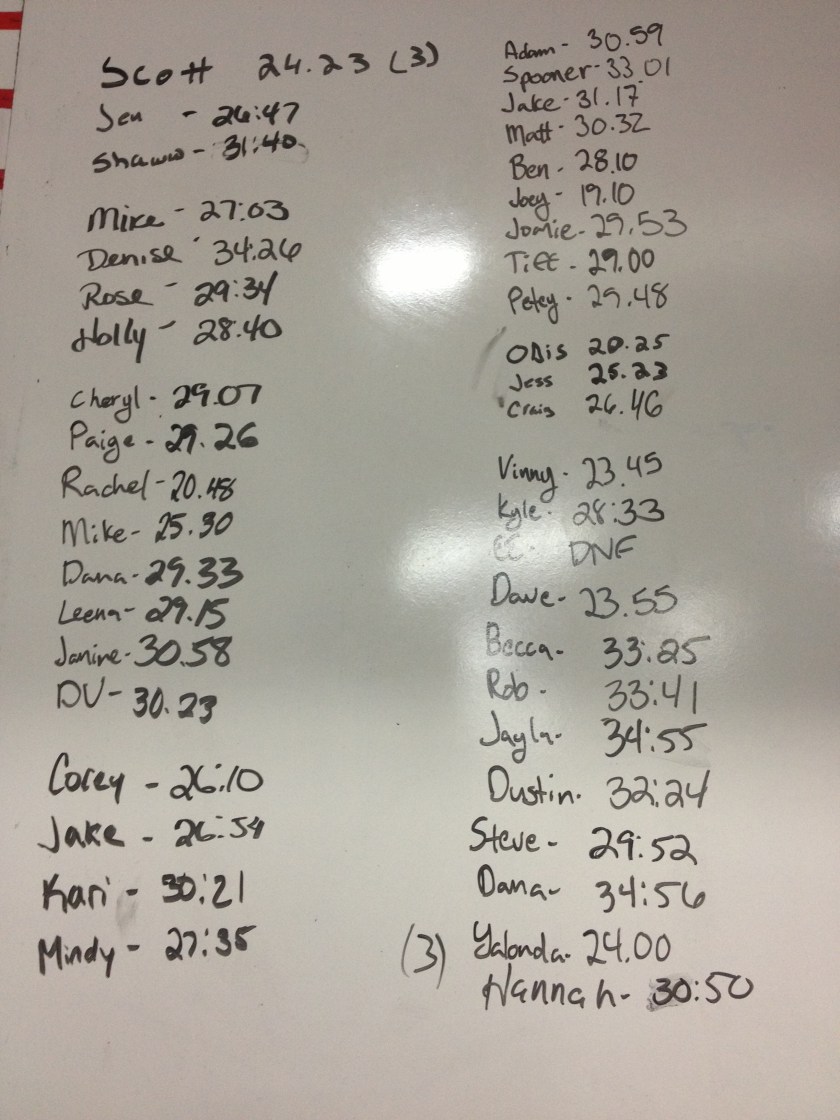 Scott 24.23 (3)
Jen - 26:47
Shawn - 31:40
Mike - 27:03
Denise - 34:26
Rose - 29:34
Holly - 28.40
Cheryl - 29.07
Paige - 29.26
Rachel - 20.48
Mike - 25.30
Dana - 29.33
Leena - 29.15
Janine - 30.58
DV - 30.23
Corey - 26:10
Jake - 26:54
Kari - 30:21
Mindy - 27:35
Adam - 30.59
Spooner - 33.01
Jake - 31.17
Matt - 30.32
Ben - 28.10
Joey - 19.10
Jamie - 29.53
Tiff - 29.00
Petey - 29.48
Obis 20.25
Jess 25.23
Craig 26.46
Vinny - 23.45
Kyle - 28:33
CC - DNF
Dave - 23.55
Becca - 33:25
Rob - 33:41
Jayla - 34:55
Dustin - 32:24
Steve - 29:52
Dana - 34:56
(3) Yalonda - 24.00
Hannah - 30:50